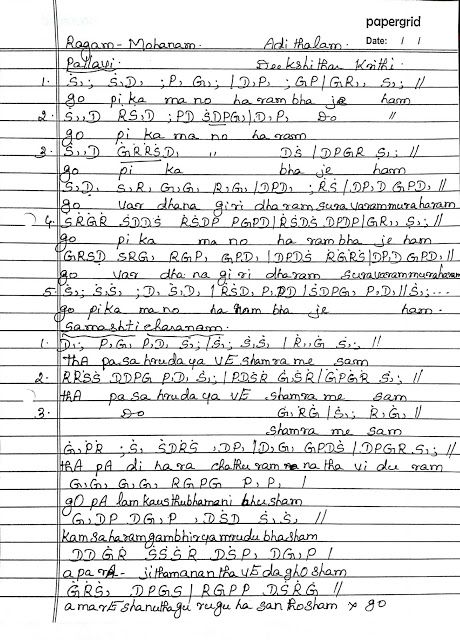 papergrid
Date: / /
Ragam - Mohanam. Adi thalam.
Pallavi Deekshithar Krithi.
1. S,; S,D, ;P, G,; | D,P, ;GP | GR,, S,; //
go pi ka ma no ha ram bha je ham
2. S,,D RS,D ; PD SDPG, | D,P, Do "
go pi ka ma no ha ram
3. S,,D GRRSD, " DS | DPGR S,; //
go pi ka bha je ham
S,D, S,R, G,G, R,G, | DPD, ;RS | DP,D GPD, //
go var dhana giri dharam suravarammuraharam
4. SRGR SDDS RSDP PGPD | RSDS DPDP | GR,, S,; //
go pi ka ma no ha rambha je ham
GRSD SRG, RGP, GPD, | DPDS RGRS | DP,D GPD, //
go var dha na gi ri dharam suravarammuraharam
5. S,; S,S, ;D, S,D, | RSD, P,DD | SDPG, P,D, // S,;...
go pi ka ma no ha ram bha je ham.
Samashti charanam.
1. D,; P,G, P,D, S,; | S,; S,S, | R,,G S,; //
thA pa sa hruda ya VE shamra me sam
2. RRSS DDPG P,D, S,; | PDSR GSR | GPGR S,; //
thA pa sa hruda ya VE shamra me sam
3. Do G,RG | S,; R,G, //
shamra me sam
G,PR ;S, SDRS ,DP, | D,G, GPDS | DPGR S,; //
thA pA di ha ra chathu ram na tha vi du ram
G,G, G,G, RGPG P,P, |
gO pA lam kausthubhamani bhusham
G,DP DG,P ,DSD S,S, //
kamsaharam gambhiryamrudubhasham
DDGR SSSR DSP, DG,P |
apara - jithamanantha vEdaghOsham
GRS, DPGS | RGPP DSRG //
amarEshanuthagurugu ha santhosham x go